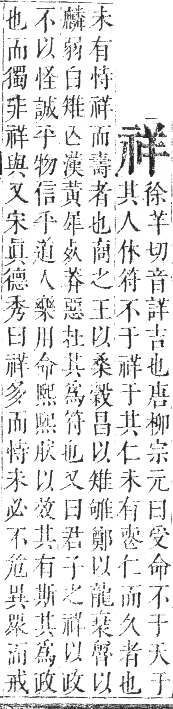 祥
徐羊切音詳吉也唐柳宗元曰受命不于天于
其人休符不于祥于其仁未有喪仁而久者也
未有恃祥而壽者也商之王以桑穀昌以雉雊鄭以龍衰魯以
麟弱白雉亡漢黃犀死莽惡在其爲符也又曰君子之祥以政
不以怪誠乎物信乎道人樂用命熙熙然以效其有斯其爲政
也而獨非祥與又宋眞德秀曰祥多而恃未必不危異眾而戒